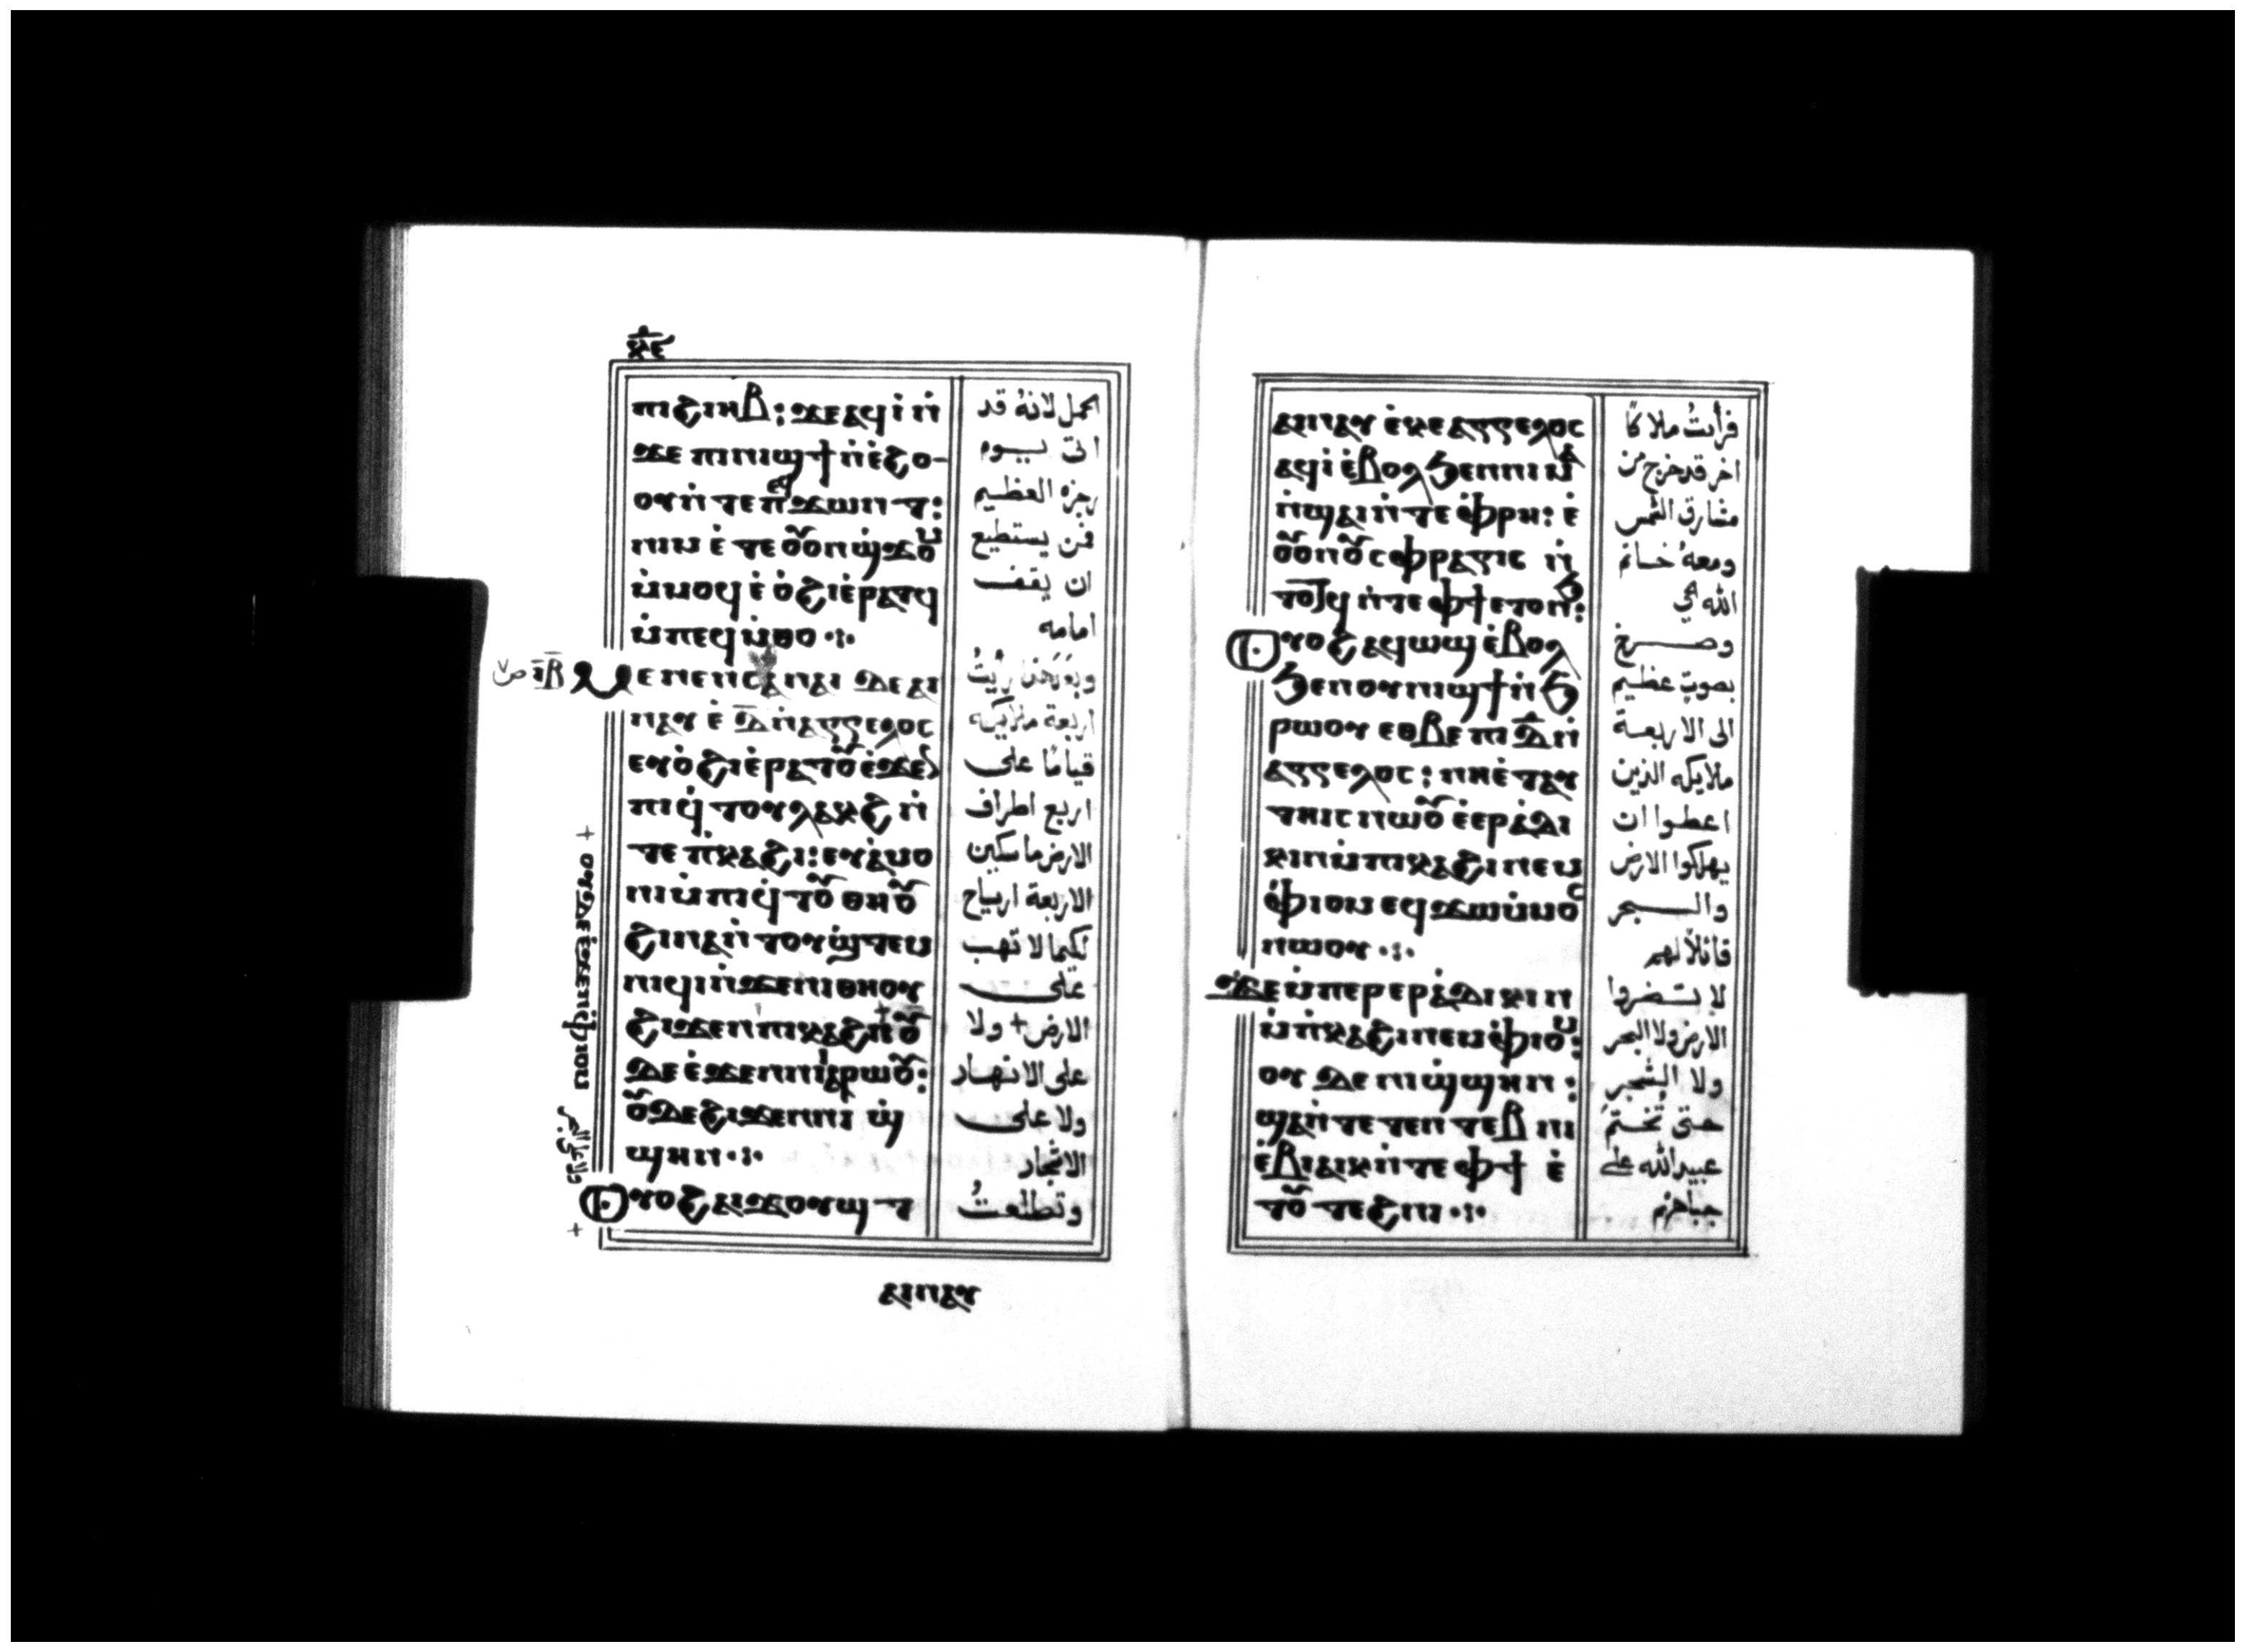 ⲝ̅ⲉ̅
ⲡⲓϩⲓⲏⲃ: ϫⲉⲁϥⲓ̀ ⲛ̀
ϫⲉ ⲡⲓⲛⲓϣϯ ⲛ̀ⲉ̀ϩⲟ-
ⲟⲩ ⲛ̀ⲧⲉ ⲡⲉϥϫⲱⲛⲧ:
ⲛⲓⲙ ⲉ̀ⲧⲉ ⲟⲩⲟⲛ ϣ̀ϫⲟⲙ
ⲙ̀ⲙⲟϥ ⲉ̀ⲟ̀ϩⲓ ⲉ̀ⲣⲁⲧϥ
ⲙ̀ⲡⲉϥⲙ̀ⲑⲟ ⁘
ⲙⲉⲛⲉⲛⲥⲁ ⲛⲁⲓ ⲇⲉ ⲁⲓ
ⲛⲁⲩ ⲉ̀ ⲇ̅ ⲛ̀ⲁⲅⲅⲉⲗⲟⲥ
ⲉⲩⲟ̀ϩⲓ ⲉ̀ⲣⲁⲧⲟⲩ ⲉ̀ϫⲉⲛ
ⲡⲓϥ̀ⲧⲟⲩ ⲗⲁⲕϩ ⲛ̀
ⲧⲉ ⲡ̀ⲕⲁϩⲓ: ⲉⲩⲁ̀ⲙⲟ
ⲛⲓ ⲙ̀ⲡⲓϥ̀ⲧⲟⲩ ⲑⲏⲟⲩ
ϩⲓⲛⲁ ⲛ̀ⲧⲟⲩϣ̀ⲧⲉⲙ
ⲛⲓϥⲓ ⲛ̀ϫⲉ ⲛⲓⲑⲏⲟⲩ
ϩⲓϫⲉⲛ ⲡⲓⲕⲁϩⲓ + ⲟⲩ
ⲇⲉ ⲉ̀ϫⲉⲛ ⲛⲓⲓⲁⲣⲱⲟⲩ:
ⲟⲩⲇⲉ ϩⲓϫⲉⲛ ⲛⲓ ϣ̀
ϣⲏⲛ ⁘
ⲟⲩⲟϩ ⲁⲓϫⲟⲩϣⲧ
الحمل لانهُ قد
اتى يوم
رجزه العظيم
فمن يستطيع
ان يقف
امامه
وبعد هذا رايتُ
اربعة ملايكه
قيامًا على
اربع اطراف
الارض ماسكين
الاربعة ارياح
لكيما لا تهب
على
الارض + ولا
على الانهار
ولا على
الاشجار
وتطلعتُ
+ ⲟⲩⲇⲉ ⲉ̀ϫⲉⲛ ⲫ̀ⲓⲟⲙ
ولا على البحر +
ⲁⲓⲛⲁⲩ
ⲁⲓⲛⲁⲩ ⲉ̀ⲕⲉⲁⲅⲅⲉⲗⲟⲥ
ⲁϥⲓ̀ ⲉ̀ⲃⲟⲗ ϧⲉⲛ ⲛⲓⲙⲁ
ⲛ̀ϣⲁⲓ ⲛ̀ⲧⲉ ⲫ̀ⲣⲏ: ⲉ̀
ⲟⲩⲟⲛ ⲟⲩⲥⲫⲣⲁⲅⲓⲥ ⲛ̀
ⲧⲟⲧϥ ⲛ̀ⲧⲉ ⲫϯ ⲉⲧⲟⲛϧ:
ⲟⲩⲟϩ ⲁϥⲱϣ ⲉ̀ⲃⲟⲗ
ϧⲉⲛ ⲟⲩⲛⲓϣϯ ⲛ̀ϧ
ⲣⲱⲟⲩ ⲉⲑⲃⲉ ⲡⲓⲇ̅ ⲛ̀
ⲁⲅⲅⲉⲗⲟⲥ: ⲛⲏⲉ̀ⲧⲁⲩ
ⲧⲏⲓⲥ ⲛⲱⲟⲩ ⲉ̀ⲉⲣⲁ̀ⲇⲓ
ⲕⲓⲛ ⲙ̀ⲡⲓⲕⲁϩⲓ ⲛⲉⲙ
ⲫ̀ⲓⲟⲙ ⲉϥϫⲱ ⲙ̀ⲙⲟⲥ
ⲛⲱⲟⲩ ⁘
ϫⲉ ⲙ̀ⲡⲉⲣⲉⲣⲁ̀ⲇⲓⲕⲓⲛ
ⲙ̀ⲡ̀ⲕⲁϩⲓ ⲛⲉⲙ ⲫ̀ⲓⲟⲙ:
ⲟⲩ ⲇⲉ ⲛⲓϣ̀ϣⲏⲛ:
ϣⲁⲛ̀ⲧⲉⲧⲉⲛⲧⲉⲃ ⲛⲓ
ⲉ̀ⲃⲓⲁⲓⲕ ⲛ̀ⲧⲉ ⲫϯ ⲉ̀
ⲧⲟⲩ ⲧⲉϩⲛⲓ ⁘
فرأيتُ ملاكًا
اخر قد خرج من
مشارق الشمس
ومعهُ خاتم
الله الحي
وصرخ
بصوتٍ عظيم
الى الاربعة
ملايكه الذين
اعطوا ان
يهلكوا الارض
والبحر
قائلًا لهم
لا تضروا
الارض ولا البحر
ولا الشجر
حتى نختم
عبيد الله على
جباههم